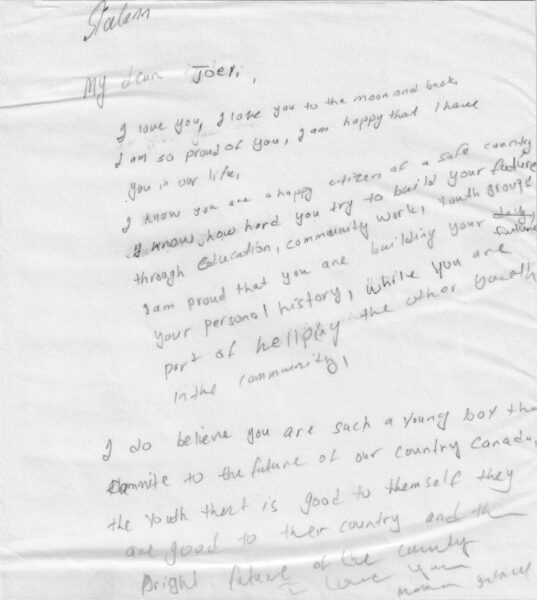 Salam
My dear Joer,
I love you, I love you to the moon and back,
I am so proud of you, I am happy that I have
you in our life,
I know you are a happy citizen of a safe country
I know how hard you try to build your future
through education, community work, Youth groups
I am proud that you are building your future
your personal history, while you are
part of hellping the other youth
in the community,
I do believe you are such a young boy the
to the future of our country Canada,
the Youth thert is good to themself they
are good to ther country and the
bright future of the county
I love you
mama